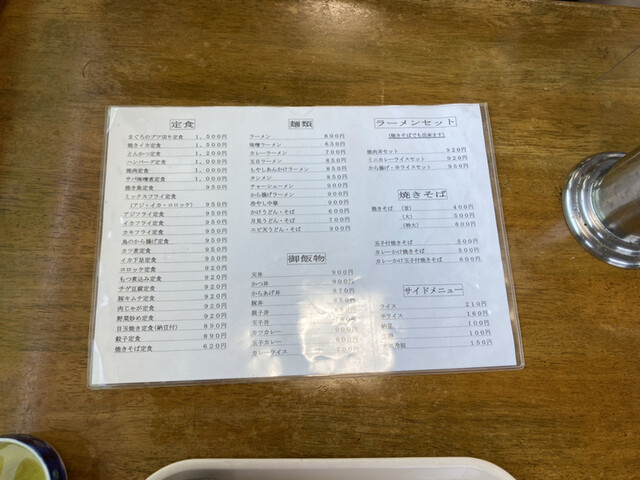 定食
まぐろのブツ切り定食 1,500円
焼きイカ定食 1,500円
とんかつ定食 1,200円
ハンバーグ定食 1,000円
焼肉定食 1,000円
サバ味噌煮定食 1,000円
焼き魚定食 950円
ミックスフライ定食
(アジ・イカ・コロッケ) 950円
アジフライ定食 950円
イカフライ定食 950円
カキフライ定食 950円
鳥のから揚げ定食 950円
カツ煮定食 950円
イカ下足定食 950円
コロッケ定食 920円
もつ煮込み定食 920円
チゲ豆腐定食 920円
豚キムチ定食 920円
肉じゃが定食 920円
野菜炒め定食 920円
目玉焼き定食(納豆付) 890円
餃子定食 890円
焼きそば定食 620円
麺類
ラーメン
味噌ラーメン 850円
カレーラーメン 700円
五目ラーメン 850円
もやしあんかけラーメン 850円
タンメン 850円
チャーシューメン 900円
から揚げラーメン 900円
冷やし中華 900円
かけうどん・そば 600円
月見うどん・そば 700円
エビ天うどん・そば 900円
御飯物
天丼 900円
かつ丼 900円
からあげ丼
豚丼
親子丼
玉子丼
カツカレー
玉子カレー
カレーライス
ラーメンセット
(焼きそばでも出来ます)
焼肉丼セット 920円
ミニカレーライスセット 920円
から揚げ・半ライスセット 950円
焼きそば
焼きそば (並) 400円
(大) 500円
(特大) 800円
玉子付焼きそば 500円
カレーかけ焼きそば 500円
カレーかけ玉子付焼きそば 600円
サイドメニュー
ライス 210円
半ライス 160円
納豆 100円
100円
150円